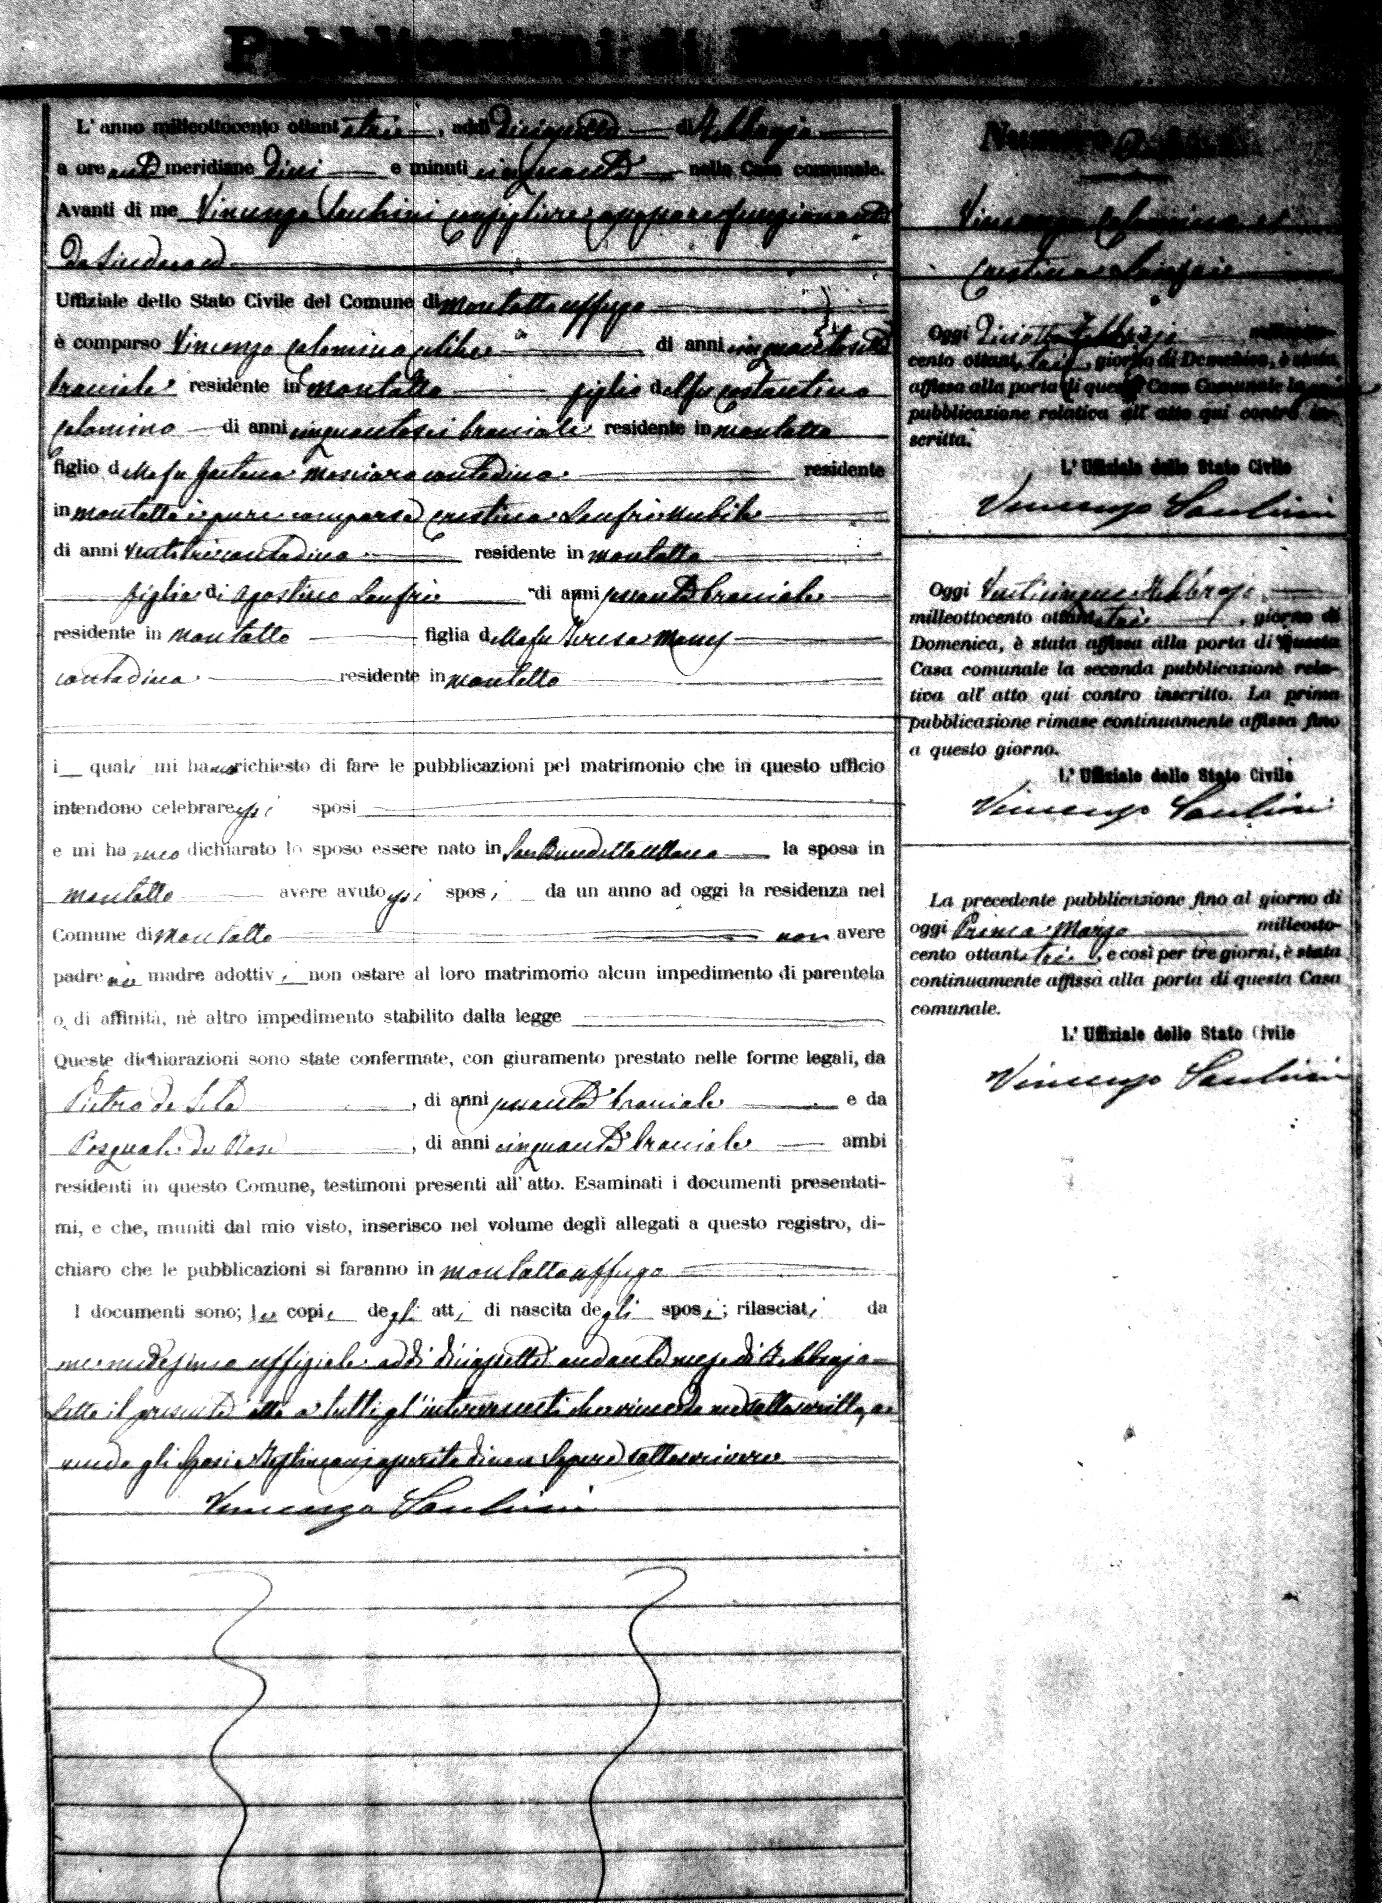 Pubblicazioni di Matrimonio
L'anno milleottocento ottantatrè, addì diciassette di Febbrajo
a ore ante meridiane dieci e minuti cinquanta nella Casa comunale.
Avanti di me Vincenzo consigliere funzionante
da Sindaco
Uffiziale dello Stato Civile del Comune di Montalto uffugo
è comparso Vincenzo Calomino celibe di anni
bracciale residente in Montalto figlio del fu Costantino
Calomino di anni cinquantasei bracciale residente in Montalto
figlio della fu Gaetana contadina residente
in Montalto è pure comparsa Cristina nubile
di anni ventitrè contadina residente in Montalto
figlia di Agostino di anni sessanta bracciale
residente in Montalto figlia della fu Teresa
contadina residente in Montalto
i quali mi hanno richiesto di fare le pubblicazioni pel matrimonio che in questo ufficio
intendono celebrare essi sposi
e mi hanno dichiarato lo sposo essere nato in San Benedetto Ullano la sposa in
Montalto avere avuto essi sposi da un anno ad oggi la residenza nel
Comune di Montalto non avere
padre nè madre adottivi non ostare al loro matrimonio alcun impedimento di parentela
o di affinità, nè altro impedimento stabilito dalla legge
Queste dichiarazioni sono state confermate, con giuramento prestato nelle forme legali, da
Pietro de , di anni sessanta bracciale e da
Pasquale de Rose , di anni cinquanta bracciale ambi
residenti in questo Comune, testimoni presenti all'atto. Esaminati i documenti presentati-
mi, e che, muniti dal mio visto, inserisco nel volume degli allegati a questo registro, di-
chiaro che le pubblicazioni si faranno in Montalto uffugo
I documenti sono; le copie degli atti di nascita degli sposi; rilasciati da
me medesimo uffiziale addì diciassette andante mese di Febbrajo
Letto il presente atto a tutti gl'intervenuti che viene da me sottoscritto, a-
vendo gli sposi e testimoni asserito di non sapere sottoscrivere
Vincenzo
Numero
Vincenzo Calomino e
Cristina
Oggi diciotto Febbrajo milleotto-
cento ottantatrè, giorno di Domenica, è stata
affissa alla porta di questa Casa Comunale la prima
pubblicazione relativa all'atto qui contro in-
scritta.
L'Uffiziale dello Stato Civile
Vincenzo
Oggi Venticinque Febbrajo
milleottocento ottantatrè, giorno di
Domenica, è stata affissa alla porta di questa
Casa comunale la seconda pubblicazione rela-
tiva all'atto qui contro inscritto. La prima
pubblicazione rimase continuamente affissa fino
a questo giorno.
L'Uffiziale dello Stato Civile
Vincenzo
La precedente pubblicazione fino al giorno di
oggi Primo Marzo milleotto-
cento ottantatrè, e così per tre giorni, è stata
continuamente affissa alla porta di questa Casa
comunale.
L'Uffiziale dello Stato Civile
Vincenzo